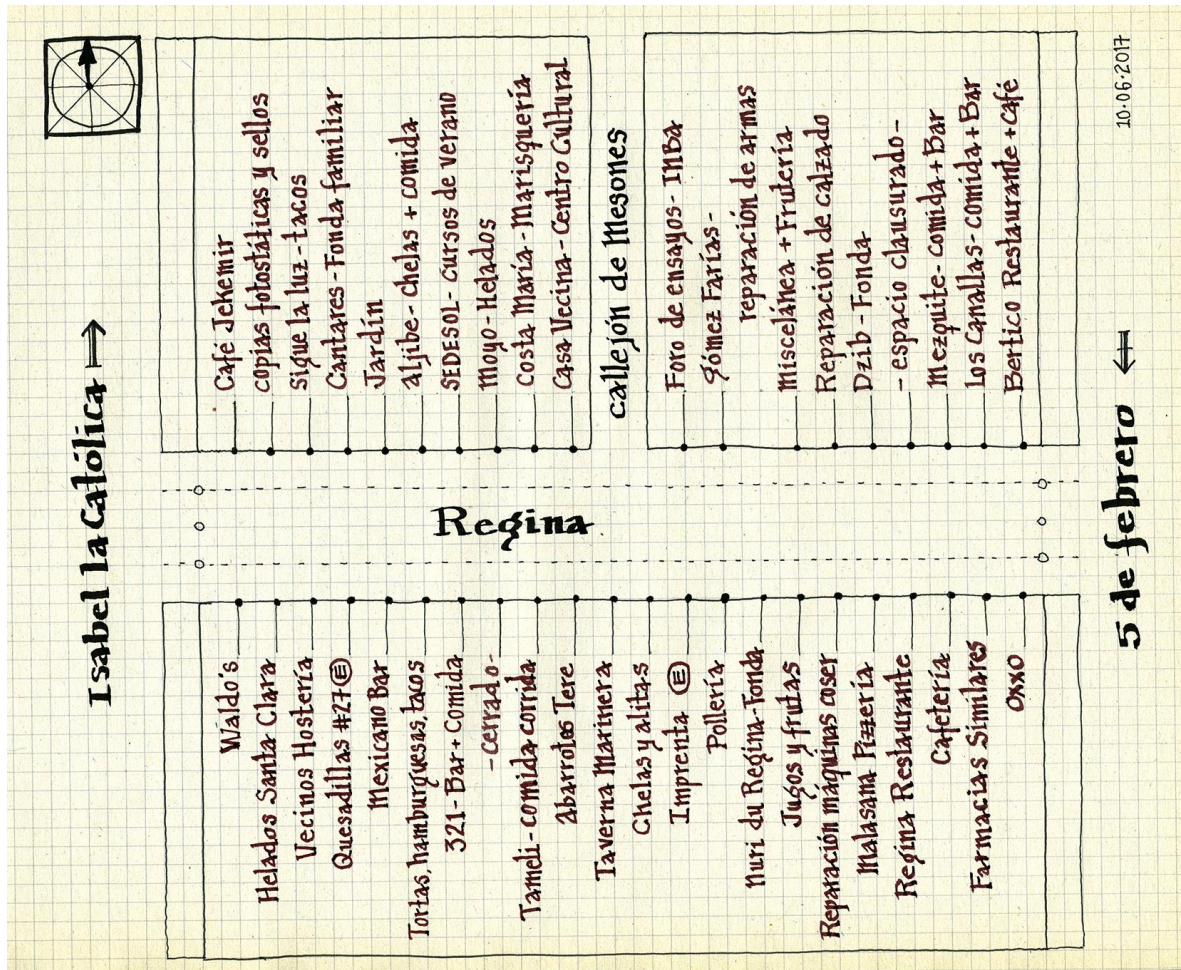 Isabel la Católica →
Café Jekemir
copias fotostáticas y sellos
Sigue la luz - tacos
Cantares - Fonda familiar
Jardín
aljibe - chelas + comida
SEDESOL - cursos de verano
Moyo - Helados
Costa María - Marisquería
Casa Vecina - Centro Cultural
callejón de Mesones
Foro de ensayos - INBa
Gómez Farías -
reparación de armas
miscelánea + Frutería
Reparación de calzado
Dzib - Fonda
- espacio clausurado -
Mezquite - comida + Bar
Los Canallas - comida + Bar
Bertico Restaurante + café
Regina
Waldo's
Helados Santa Clara
Vecinos Hostería
Quesadillas #27 E
Mexicano Bar
Tortas, hamburguesas, tacos
321 - Bar + Comida
- cerrado -
Tameli - comida corrida
Abarrotes Tere
Taverna Marinera
Chelas y alitas
Imprenta E
Pollería
Nuri du Regina - Fonda
Jugos y frutas
Reparación máquinas coser
Malasana Pizzería
Regina Restaurante
Cafetería
Farmacias Similares
OXXO
5 de febrero ←
10·06·2017